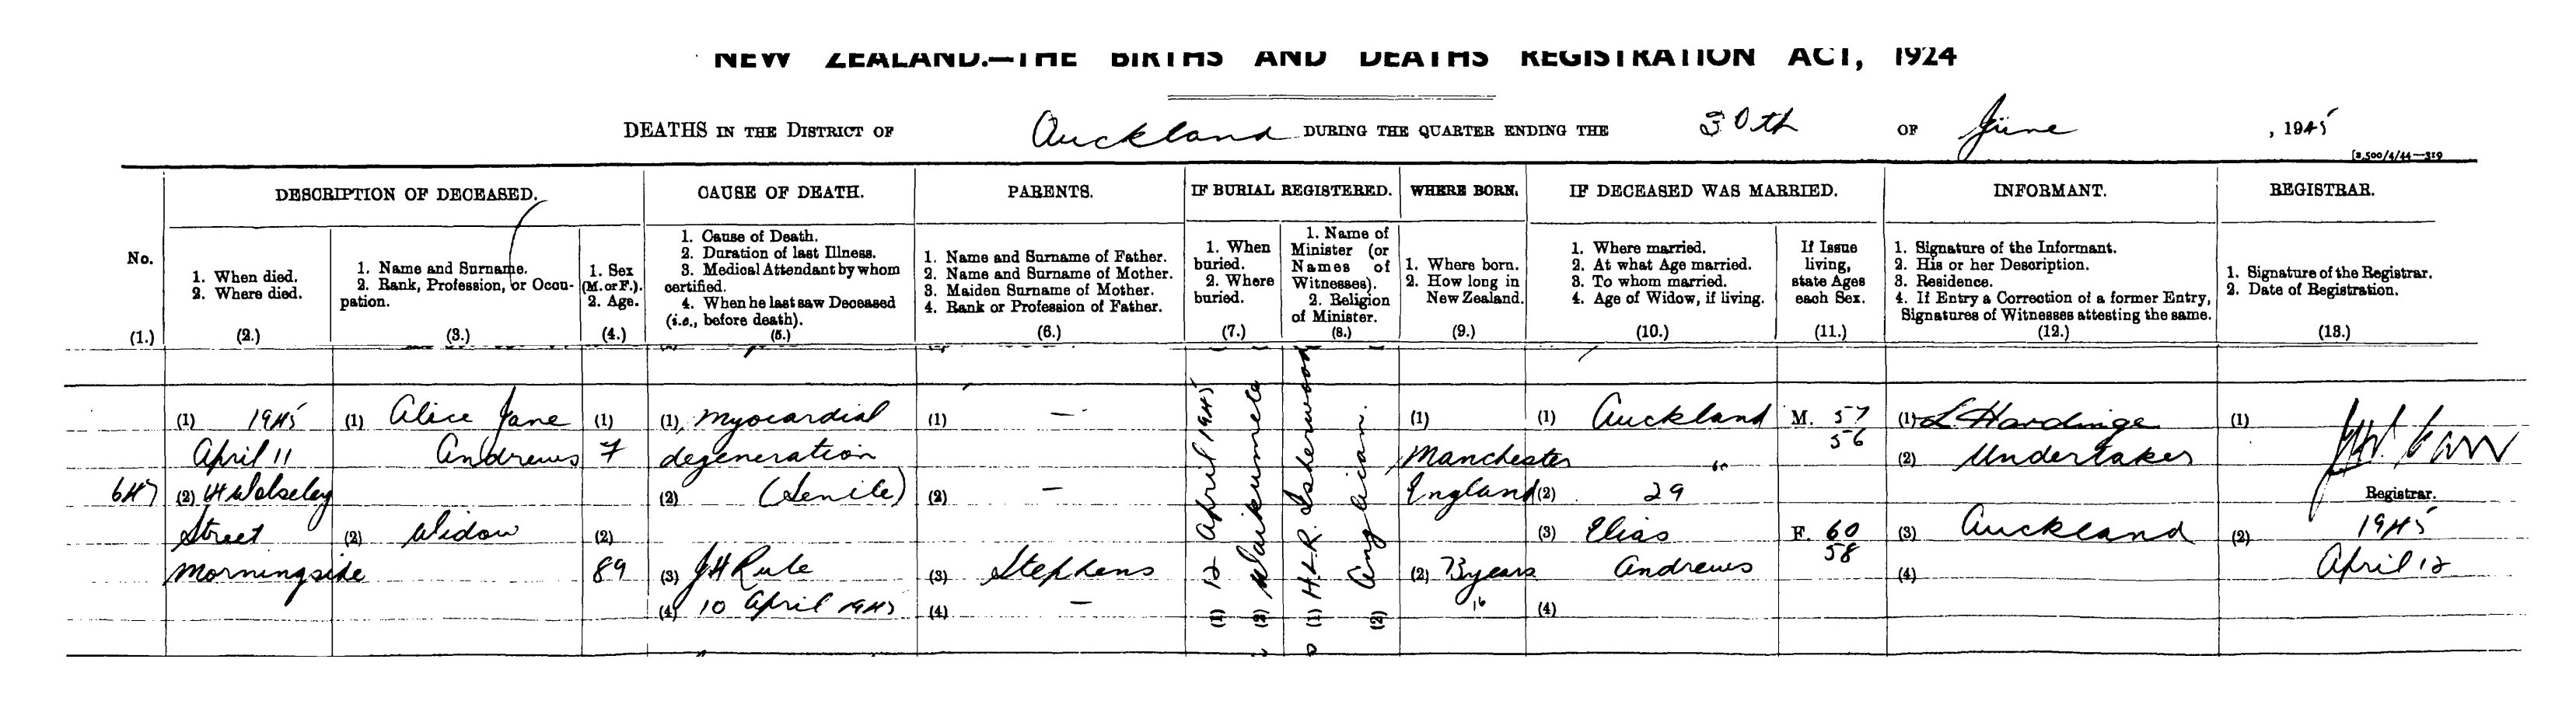 NEW ZEALAND.—THE BIRTHS AND DEATHS REGISTRATION ACT, 1924
DEATHS IN THE DISTRICT OF Auckland DURING THE QUARTER ENDING THE 30th OF June, 1945
[2,500/4/44—319
No.
(1.)
DESCRIPTION OF DECEASED.
1. When died.
2. Where died.
(2.)
1. Name and Surname.
2. Rank, Profession, or Occu-
pation.
(3.)
1. Sex
(M. or F.).
2. Age.
(4.)
CAUSE OF DEATH.
1. Cause of Death.
2. Duration of last Illness.
3. Medical Attendant by whom
certified.
4. When he last saw Deceased
(i.e., before death).
(5.)
PARENTS.
1. Name and Surname of Father.
2. Name and Surname of Mother.
3. Maiden Surname of Mother.
4. Rank or Profession of Father.
(6.)
IF BURIAL REGISTERED.
1. When
buried.
2. Where
buried.
(7.)
1. Name of
Minister (or
Names of
Witnesses).
2. Religion
of Minister.
(8.)
WHERE BORN.
1. Where born.
2. How long in
New Zealand.
(9.)
IF DECEASED WAS MARRIED.
1. Where married.
2. At what Age married.
3. To whom married.
4. Age of Widow, if living.
(10.)
If Issue
living,
state Ages
each Sex.
(11.)
INFORMANT.
1. Signature of the Informant.
2. His or her Description.
3. Residence.
4. If Entry a Correction of a former Entry,
Signatures of Witnesses attesting the same.
(12.)
REGISTRAR.
1. Signature of the Registrar.
2. Date of Registration.
(13.)
647
(1) 1945
April 11
(2) 4 Wolseley
Street
Morningside
(1) Alice Jane
Andrews
(2) Widow
(1)
F
(2)
89
(1) Myocardial
degeneration
(2) (Senile)
(3) J H Rule
(4) 10 April 1945
(1) —
(2) —
(3) Stephens
(4) —
(1) 12 April 1945
(2) Waikumete
(1) H.L.R. Isherwood
(2) Anglican.
(1)
Manchester
England
(2) 73 years
(1) Auckland
(2) 29
(3) Elias
Andrews
(4)
M. 57
56
F. 60
58
(1) L Hardinge
(2) Undertaker
(3) Auckland
(4)
(1)
Registrar.
(2) 1945
April 12